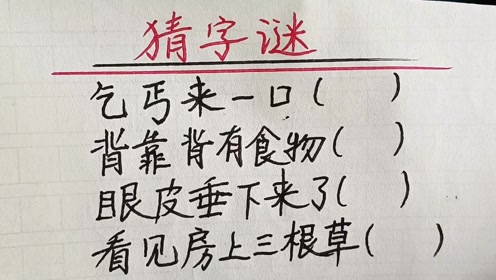 猜字谜
乞丐来一口(  )
背靠背有食物(  )
眼皮垂下来了(  )
看见房上三根草(  )